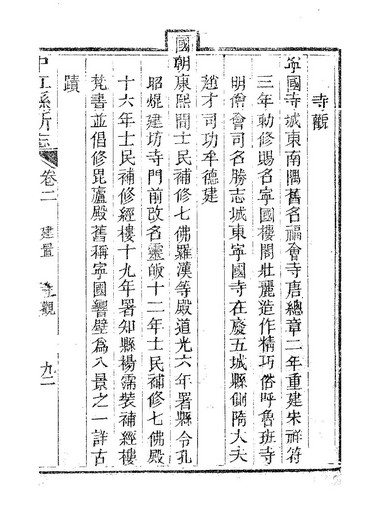 寺觀
寧國寺城東南隅舊名福會寺唐總章二年重建宋祥符
三年勅修賜名寧國樓閣壯麗造作精巧俗呼魯班寺
明曹會司名勝志城東寧國寺在廢五城縣側隋大夫
趙才司功牟德建
國朝康熙間士民補修七佛羅漢等殿道光六年署縣令孔
昭焜建坊寺門前改名靈皈十二年士民補修七佛殿
十六年士民補修經樓十九年署知縣楊霈裝補經樓
梵書並倡修毘廬殿舊稱寧國響壁為八景之一詳古
蹟
中江縣新志 卷二 建置 寺觀 九二